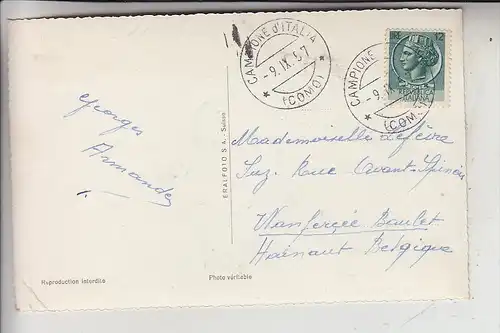 CAMPIONE d'ITALIA
-9.IX.57
* (COMO) *
CAMPIONE
-9.IX
* (COMO
12
ITALIANA
Georges
Armande
ERALFOTO S.A. - Suisse
Mademoiselle Lefèvre
Suz. Rue Avant-Spinois
Wanfercée Baulet
Hainaut Belgique
Reproduction interdite
Photo véritable